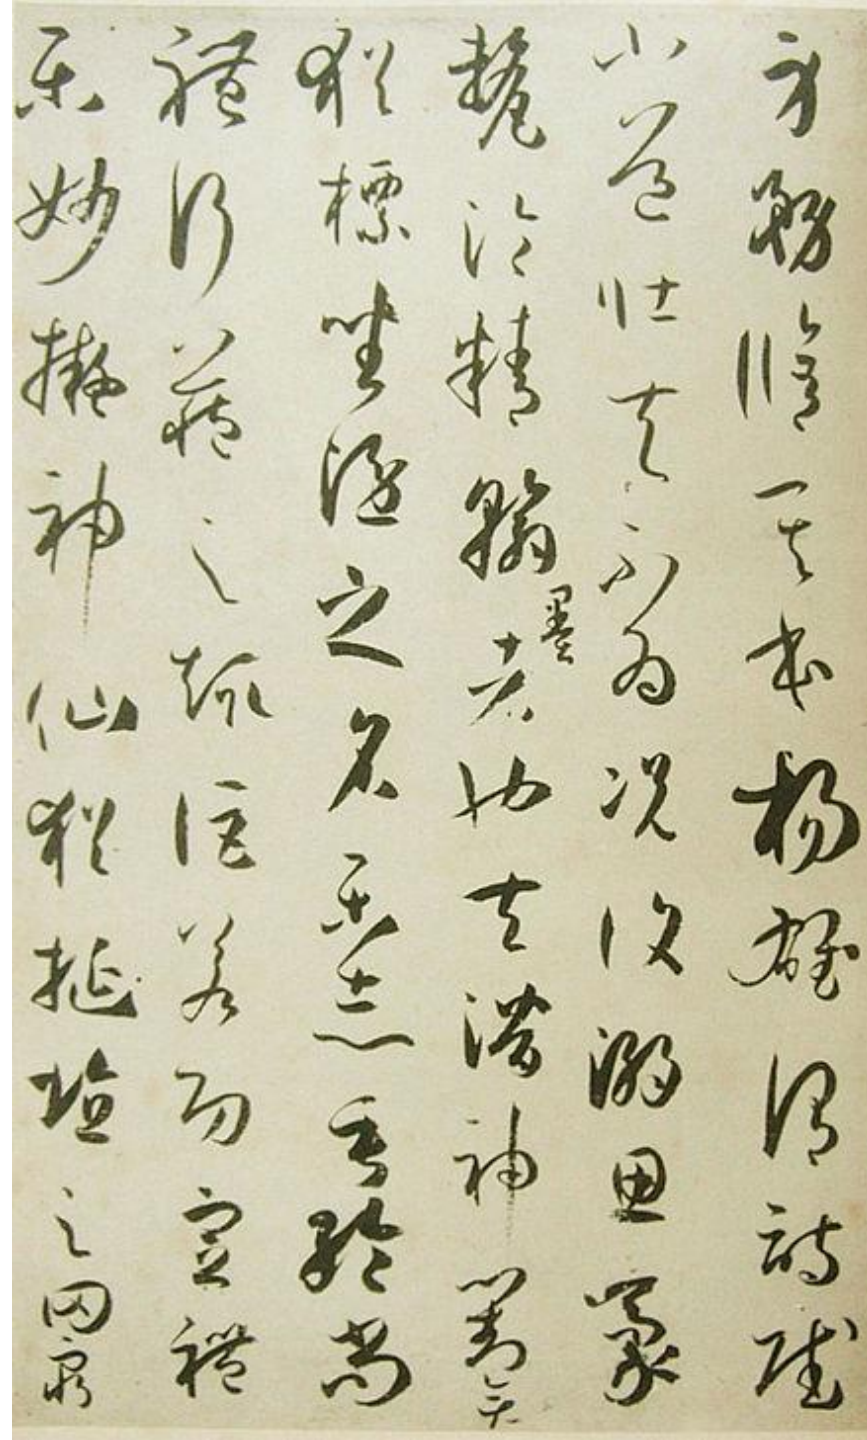 身務脩其本楊雄謂詩賦
小道壯夫不為況復溺思豪
氂淪精翰墨者也夫潛神對弈
猶標坐隱之名樂志垂綸尚
體行藏之趣詎若功宣禮
樂妙擬神仙猶埏埴之罔窮